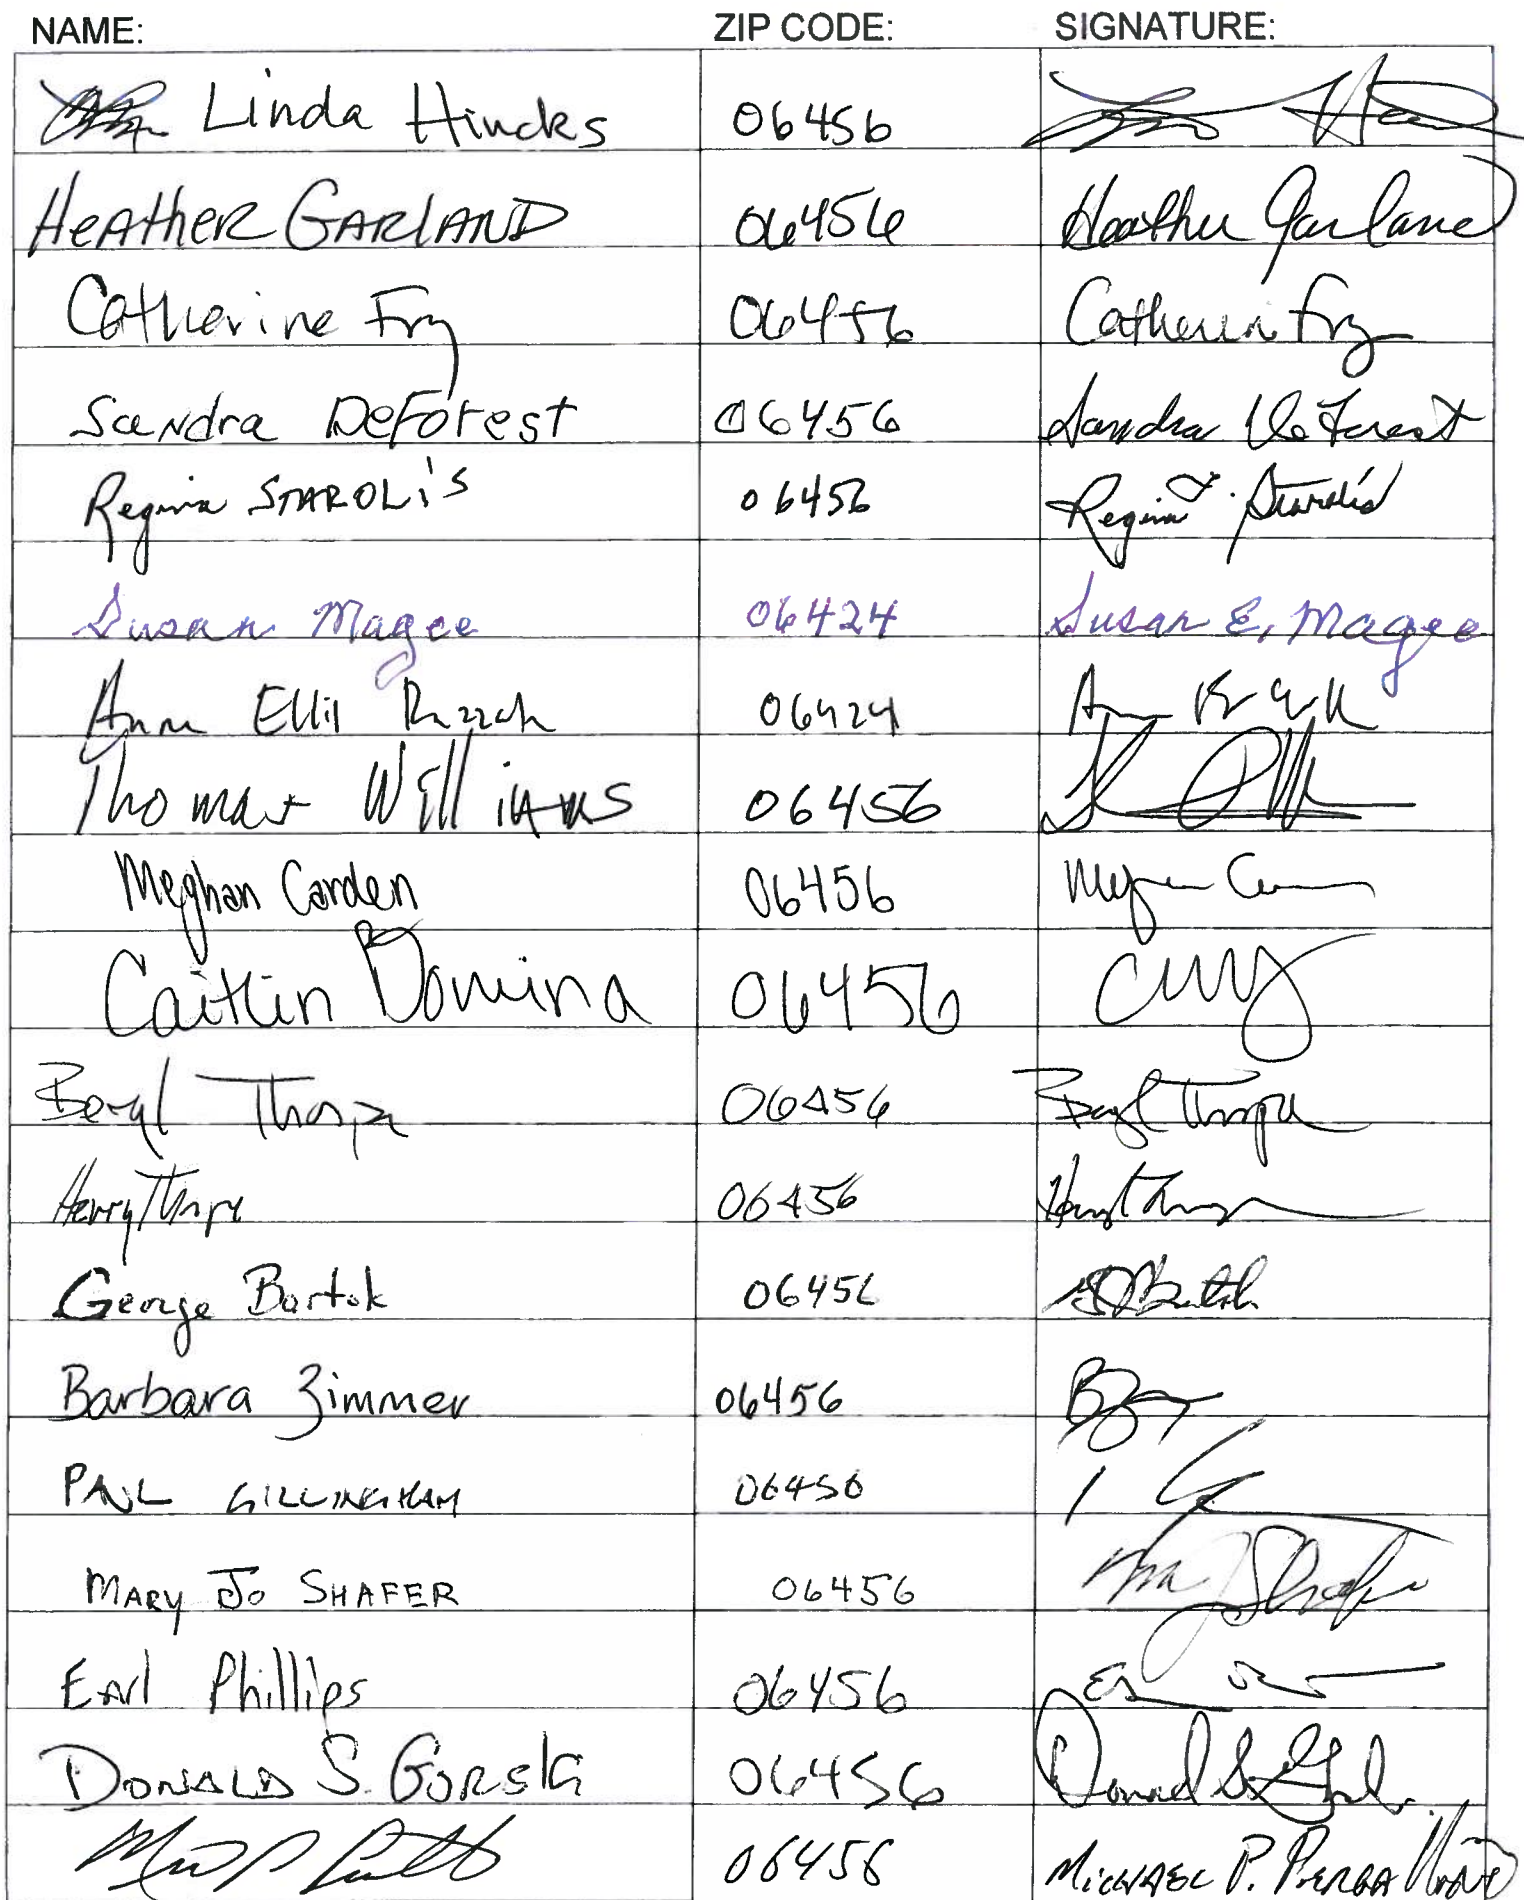 NAME: ZIP CODE: SIGNATURE:
Linda Hincks 06456
HEATHER GARLAND 06456 Heather Garland
Catherine Fry 06456 Catherine Fry
Sandra DeForest 06456 Sandra DeForest
Regina STAROLIS 06456 Regina Starolis
Susan Magee 06424 Susan E. Magee
Anne 06424
Thomas Williams 06456
Meghan Carden 06456
Caitlin Domina 06456
Beryl Thorpe 06456 Beryl Thorpe
Henry Thorpe 06456
George Bartok 06456
Barbara Zimmer 06456
PAUL GILLINGHAM 06456
MARY JO SHAFER 06456
Earl Phillips 06456
DONALD S. GORSKI 06456 Donald S.
06456 MICHAEL P.